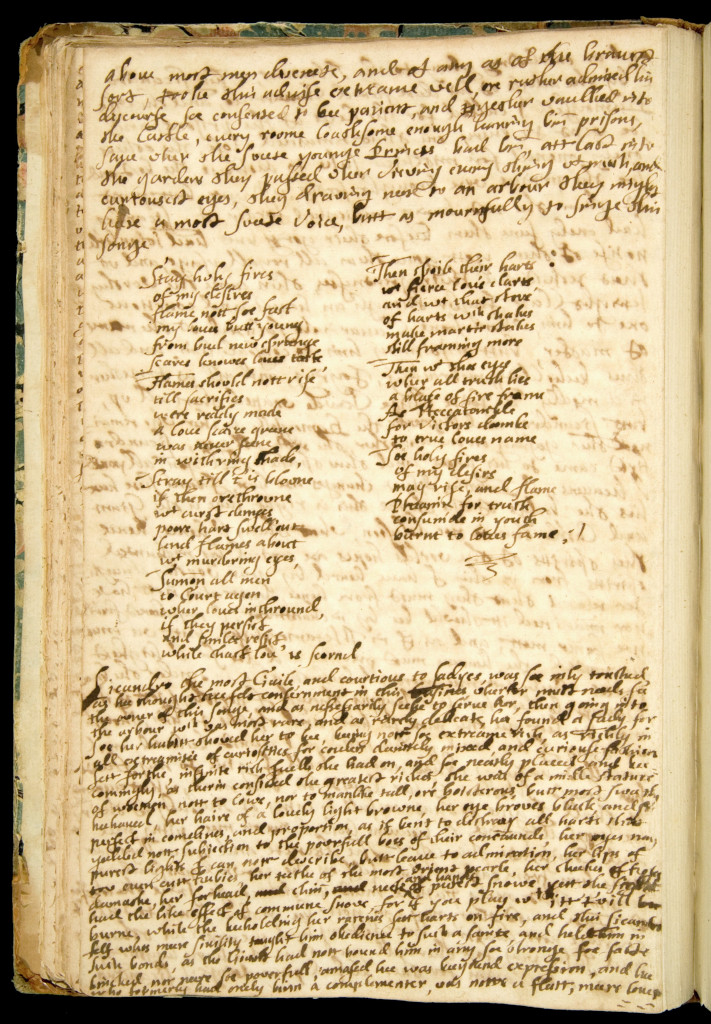 above most men
sort, tooke this advise extreame well, or rather admired his
discourse, soe consented to bee patient, and together walked into
the Castle, every roome loathsome enough having bin prisons,
save wher the sweete younge Princes had bin, att last into
the gardens they passed wher viewing every thing
curiousest eyes, they drawing neer to an arbour they might
heare a most sweete voice, butt as mournfully to singe this
songe
Stay holy fires
of my desires
flame nott soe fast
my loves butt young
from bud new sprunge
scarce knowes loves taste,
Flames should nott rise,
till sacrifies
were reddy made
a love scarce greene
was never seene
in withring shade,
Stay till t'is blowne
if then orethrowne
wt curst denyes
poore hart swell out
send flames about
wt murdering eyes,
Sumon all men
to Court agen
wher loves inthround,
if they persist
and smiles resist
while chast love is scornd
Then spoile their harts
wt fierce loves darts,
and wt that store
of harts wch shakes
make martir stakes
still framing more
Then wt thos eyes
wher all truth lies
a blase of fire frame
As
for victors doombe
to true loves name
Soe holy fires
of my desirs
may rise, and flame
Phoenix for truth
consum'de in youth
burnt to loves fame
Licandro the most Civile, and courtious to ladyes, was soe only touched
as hee thought hee had confinment in this must needs see
the owner of this songe, and as nessessarily seeke to serve her, then going into
the arbour wch was most rare, and as rarely delicate, hee found a lady, for
soe her habitt showed her to bee, being nott soe extreame rich, as richly in
all extremitie of curiosities for coulers daintely mixed, and curiouse fashion
sett forthe, infinite rich juells she had on, and soe neatly placed, and be=
comingly, as therin consisted the greatest riches, she was of a midle stature
of woemen, nott to lowe, nor to manlike tall, ore boisterous butt most sweetly
behaved, her haire of a lovely light browne, her eye browes black, and soe
perfect in comelines, and proportion, as if bent to destroy all harts that
yeelded nott subjection to the powerfull bow of their comaunds, her eyes
purest lights I can nott describe, butt leave to admiration, her lips of
two even cutt rubies her teethe of the most orient pearle, her cheekes of
damaske, her forhead, chin, neck and hands of purest snowe, yett she
had the like effect of commune snowe, for if you play wt itt t'will
burne, while the beeholding her rarenes sett harts on fire, and this Licandro
felt whos mere civilitie taught him obedience to such a sainte and held him in
such bonds, as the Giant had nott bound him in any soe stronge soe faste
knitted nor neere soe powerfull, amased hee was beeyound expression, and hee
who formerly had only bin a complementer, was nowe a flatt, mere lover